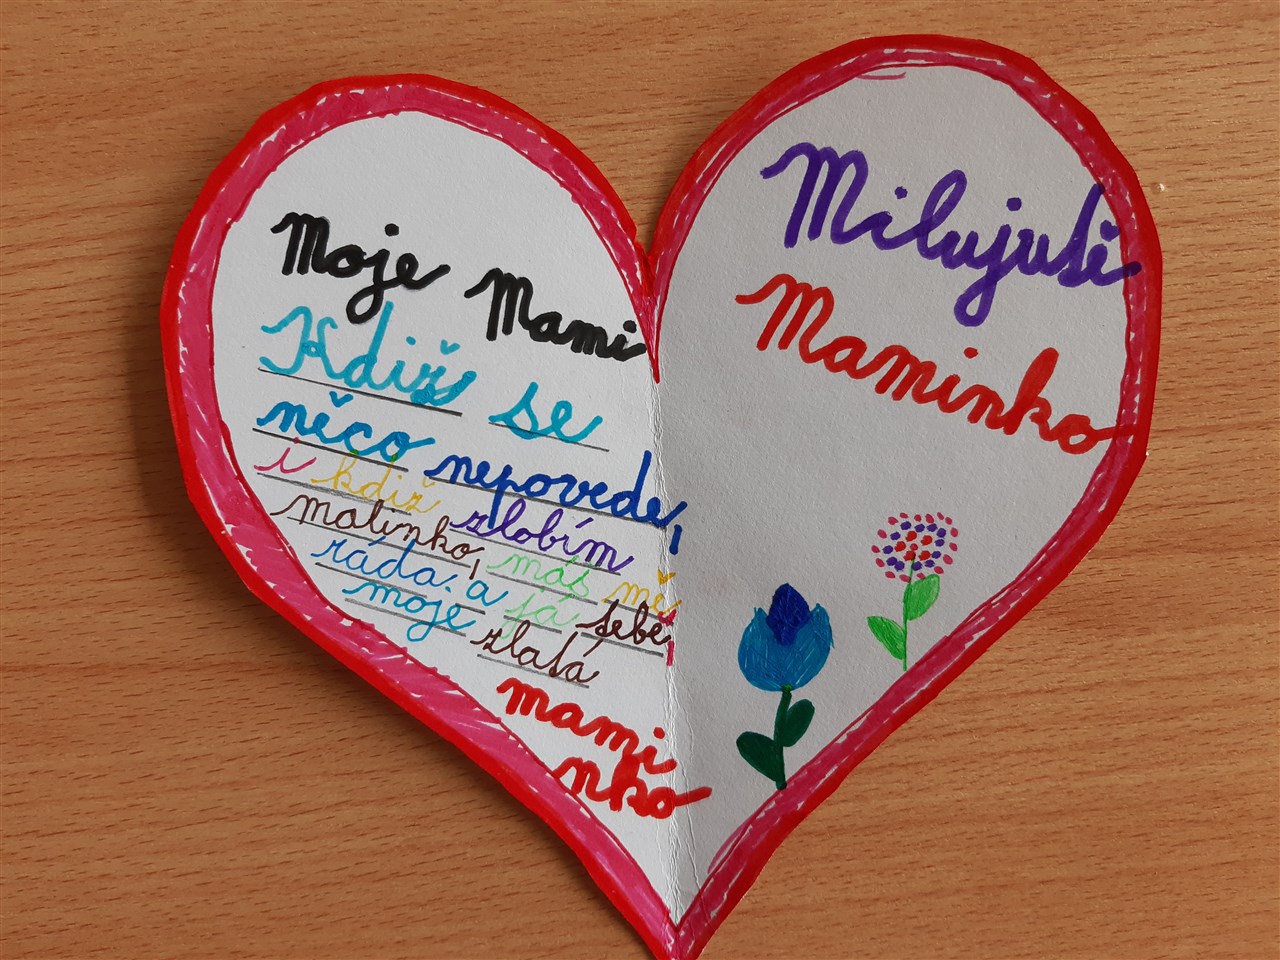 Moje Mami
Kdiž se
něco nepovede,
i kdiž zlobím
malinko, máš mě
ráda. a já tebe,
moje zlatá
mami
nko
Milujutě
Maminko